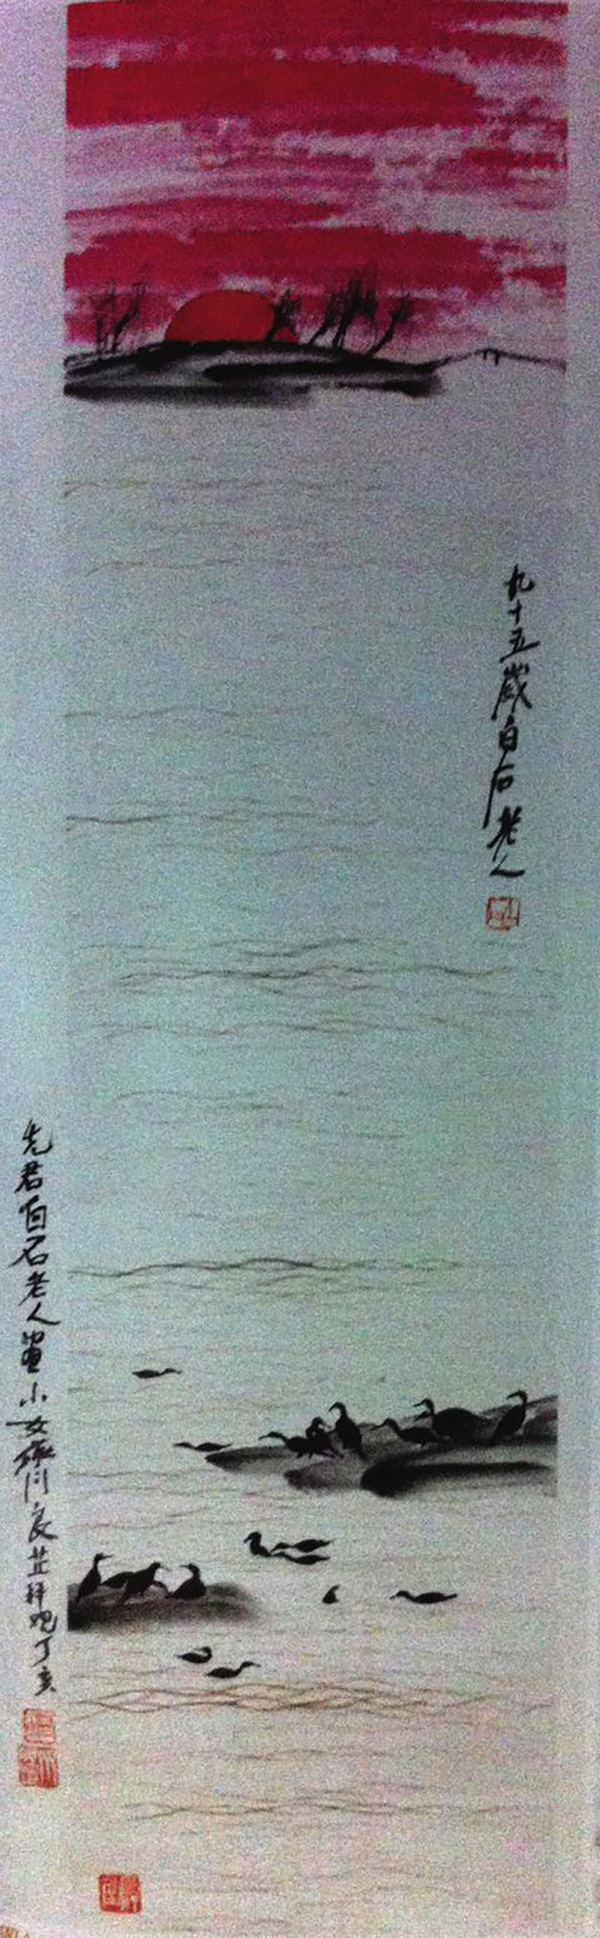 九十五歲白石老人
先君白石老人畫小女齊良芷拜观丁亥